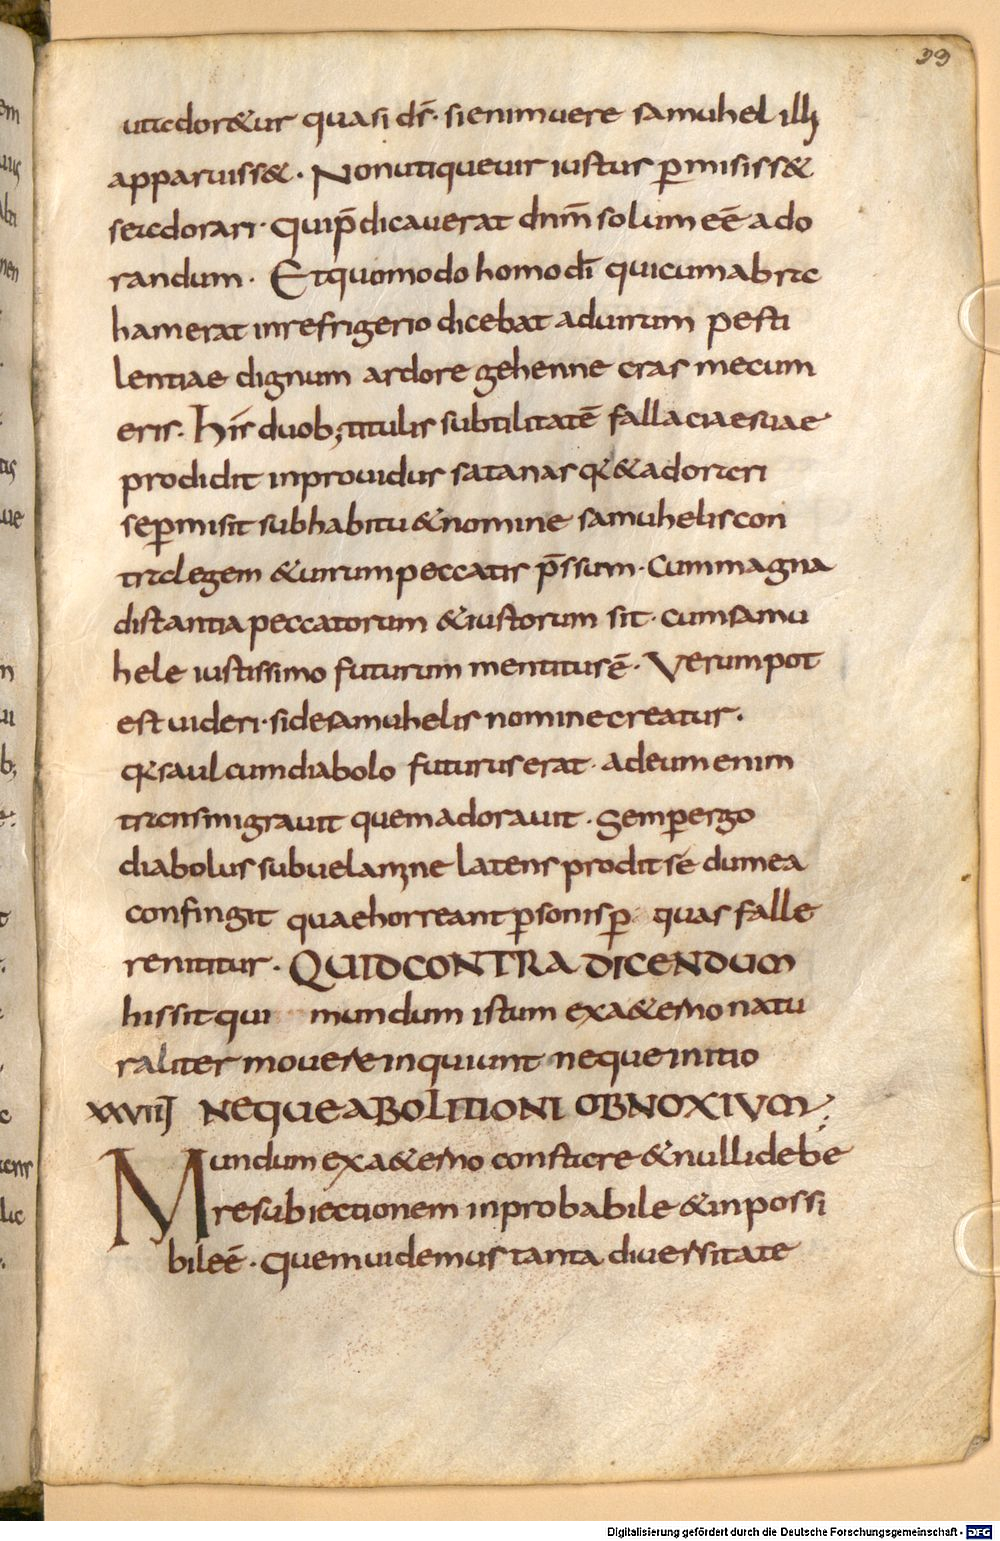 33
utador&ur quasi ds̄· si enim uere samuhel illi
apparuiss&· Non utique uir iustus p̄misiss&
se adorari· Qui p̄dicauerat dnm̄ solum eē ado
randum· Et quomodo homo dī qui cum abra
ham erat in refrigerio dicebat ad uirum pesti
lentiae dignum ardore gehenne cras mecum
eris· His duob; titulis subtilitatē fallaciae suae
prodidit inprouidus satanas q: & adorari
se p̄misit sub habitu & nomine samuhelis con
tra legem & uirum peccatis p̄ssum· Cum magna
distantia peccatorum & iustorum sit· cum samu
hele iustissimo futurum mentitus ē· Verum pot
est uideri· si de samuhelis nomine creatur·
q: saul cum diabolo futurus erat· ad eum enim
transmigrauit quem adorauit· Semp ergo
diabolus sub uelamine latens prodit se dum ea
confingit quae horreant p̄sonis p̄ quas falle
re nititur· QUID CONTRA DICENDUM
his sit qui mundum istum ex a&erno natu
raliter mouere inquiunt neque initio
XXVIIII NEQUE ABOLITIONI OBNOXIVM;
Mundum ex a&erno constare & nulli debe
re subiectionem inprobabile & inpossi
bile ē· Quem uidemus tanta diuersitate
Digitalisierung gefördert durch die Deutsche Forschungsgemeinschaft - DFG